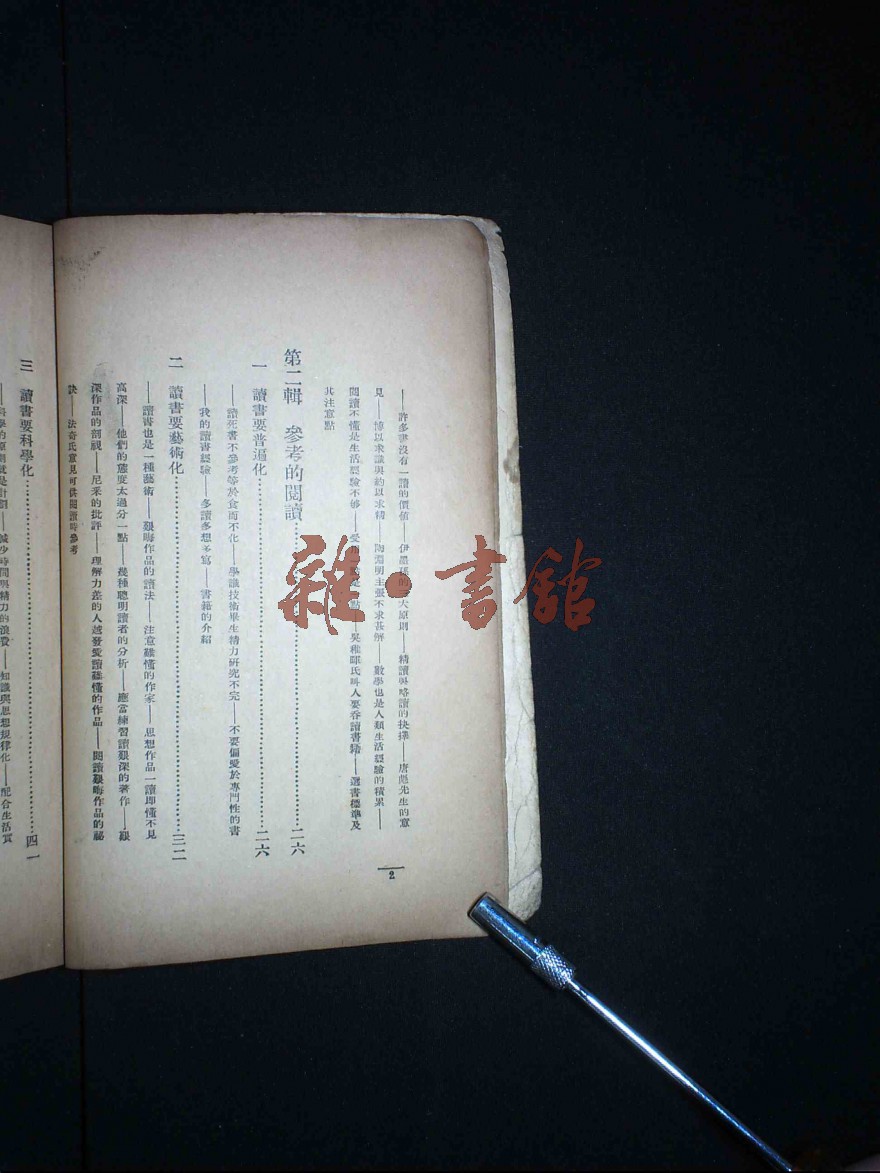 ——許多書沒有一讀的價值——伊墨 的 大原則——精讀與略讀的抉擇——唐彪先生的意
見——博以求識與約以求精——陶淵明主張不求甚解——數學也是人類生活經驗的積累——
閱讀不懂是生活經驗不够——愛 點——吳稚暉氏叫人要吞讀書籍——選書標準及
其注意點
第二輯 參考的閱讀……二六
一 讀書要普遍化……二六
——讀死書不參考等於食而不化——學識技術畢生精力研究不完——不要偏愛於專門性的書
——我的讀書經驗——多讀多想多寫——書籍的介紹
二 讀書要藝術化……三二
——讀書也是一種藝術——艱晦作品的讀法——注意難懂的作家——思想作品一讀即懂不見
高深——他們的態度太過分一點——幾種聰明讀者的分析——應當練習讀艱深的著作——艱
深作品的剖視——尼采的批評——理解力差的人越發愛讀難懂的作品——閱讀艱晦作品的祕
訣——法奇氏意見可供閱讀時參考
三 讀書要科學化……四一
——科學的原則就是計劃——減少時間與精力的浪費——知識與思想規律化——配合生活實
2
雜·書館